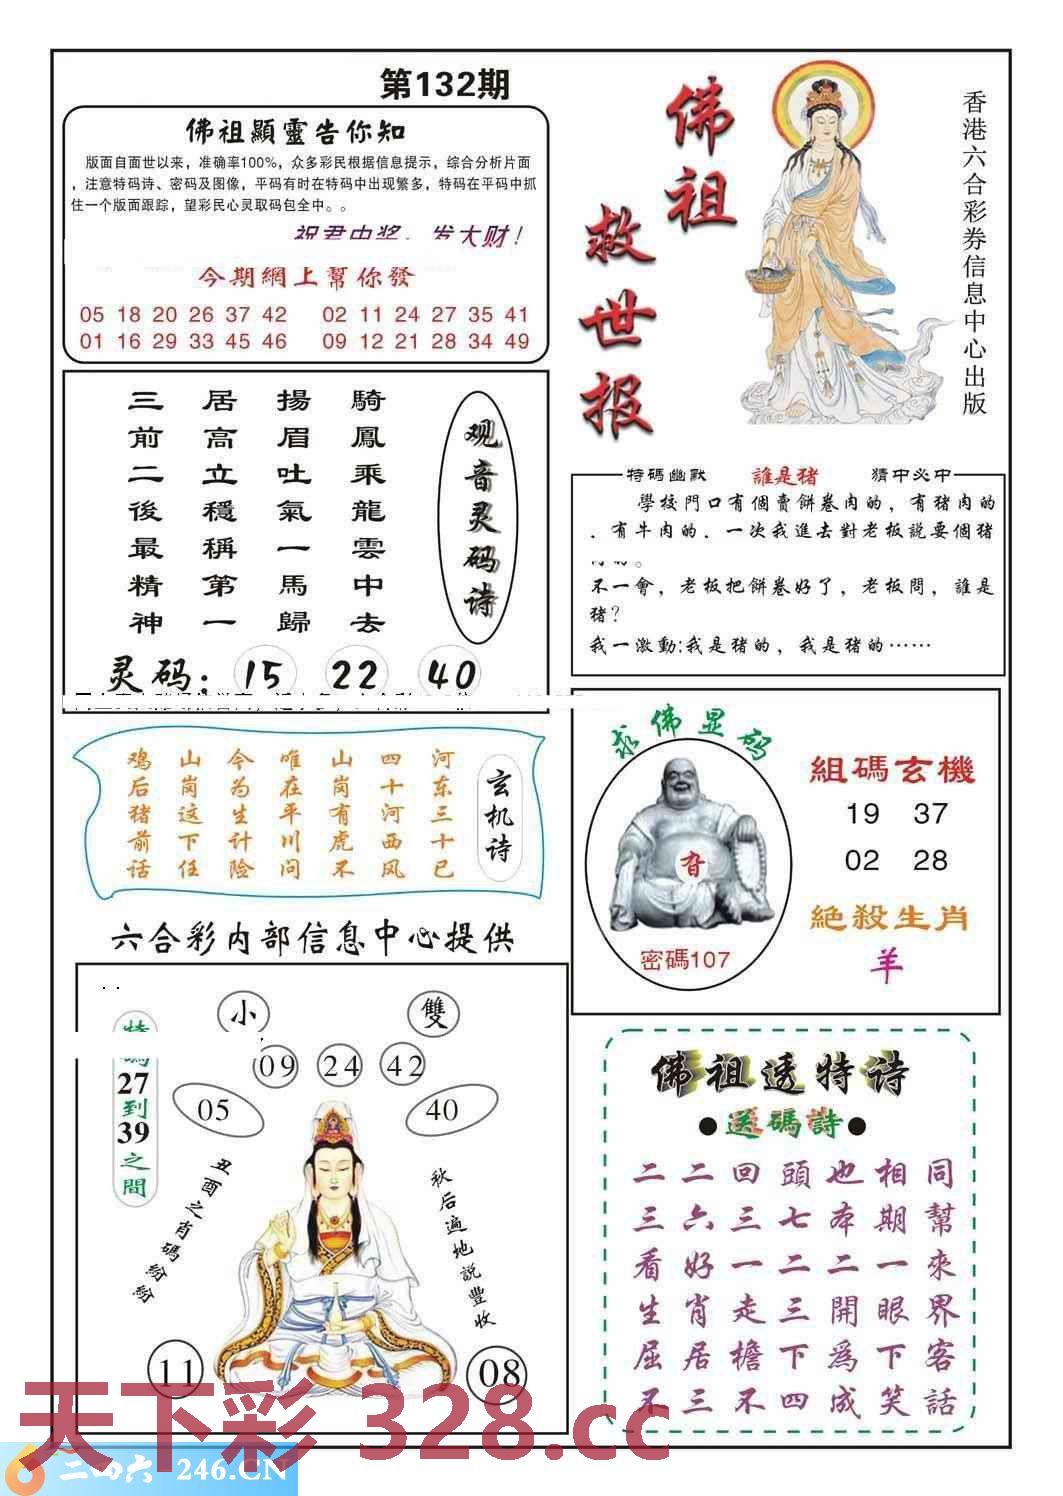 第132期
佛祖顯靈告你知
版面自面世以来，准确率100%，众多彩民根据信息提示，综合分析片面
，注意特码诗、密码及图像，平码有时在特码中出现繁多，特码在平码中抓
住一个版面跟踪，望彩民心灵取码包全中。。
祝君中奖，发大财！
今期網上幫你發
05 18 20 26 37 42 02 11 24 27 35 41
01 16 29 33 45 46 09 12 21 28 34 49
佛祖
救世报
香港六合彩券信息中心出版
騎鳳乘龍雲中去
揚眉吐氣一馬歸
居高立穩稱第一
三前二後最精神
观音灵码诗
灵码：15 22 40
特碼幽默 誰是猪 猜中必中
學校門口有個賣餅卷肉的，有猪肉的
．有牛肉的．一次我進去對老板説要個猪
不一會，老板把餅卷好了，老板問，誰是
猪？
我一激動:我是猪的，我是猪的……
玄机诗
河东三十已
四十河西风
山岗有虎不
唯在平川问
今为生计险
山岗这下任
鸡后猪前话
求佛显码
旮
密碼107
組碼玄機
19 37
02 28
絕殺生肖
羊
六合彩内部信息中心提供
小 雙
09 24 42
05 40
特碼27到39之間
丑酉之肖碼紛紛
秋后遍地説豐收
11 08
佛祖透特诗
●送碼詩●
二二回頭也相同
三六三七本期幫
看好一二二一來
生肖走三開眼界
屈居檐下爲下客
不三不四成笑話
天下彩 328.cc
二四六 246.CN